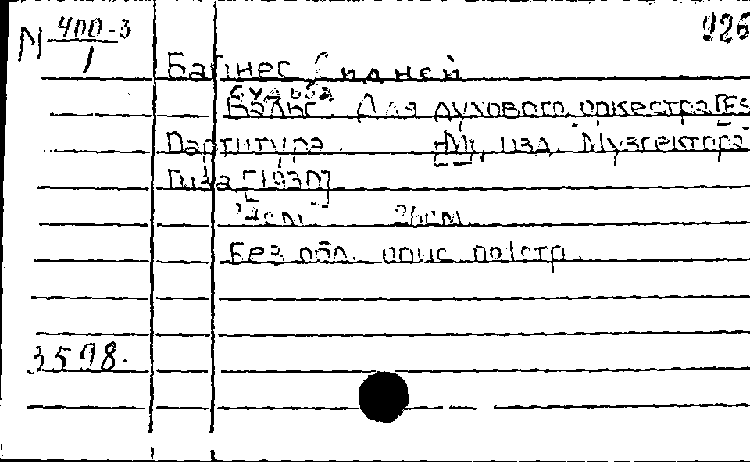 М 400-3/1
926
Байнес Сидней
Судьба
Вальс. Для духового оркестра [Es
Партитура. М., изд. Музсектора
Гиза [1930]
26 см.
Без обл. опис. по 1 стр.
3598.